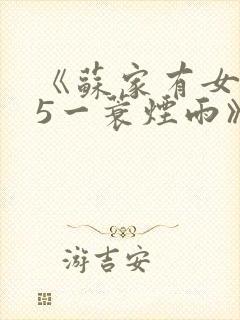 《蘇家有女
5一蓑煙雨》
游吉安